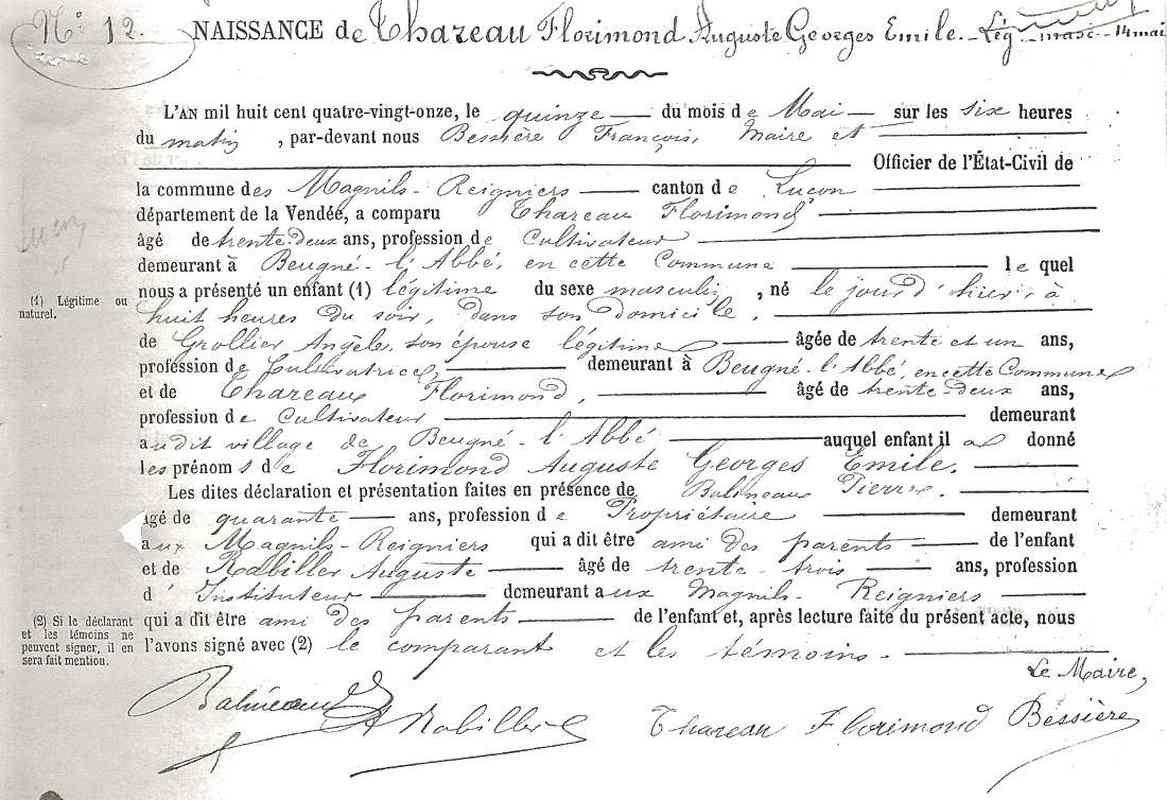 N° 12. NAISSANCE de Thareau Florimond Auguste Georges Emile. - Lég. masc. - 14 mai
L'AN mil huit cent quatre-vingt-onze, le quinze du mois de Mai sur les six heures
du matin, par-devant nous Bessière François, Maire et
Officier de l'État-Civil de
la commune des Magnils-Reigniers canton de Luçon
département de la Vendée, a comparu Thareau Florimond
âgé de trente-deux ans, profession de Cultivateur
demeurant à Beugné-l'Abbé, en cette Commune lequel
nous a présenté un enfant (1) légitime du sexe masculin, né le jour d'hier, à
(1) Légitime ou
naturel.
huit heures du soir, dans son domicile,
de Grollier Angèle, son épouse légitime âgée de trente et un ans,
profession de Cultivatrice, demeurant à Beugné-l'Abbé, en cette Commune
et de Thareau Florimond, âgé de trente-deux ans,
profession de Cultivateur demeurant
audit village de Beugné-l'Abbé auquel enfant il a donné
les prénoms de Florimond Auguste Georges Emile.
Les dites déclaration et présentation faites en présence de Balineau Pierre.
âgé de quarante ans, profession de Propriétaire demeurant
aux Magnils-Reigniers qui a dit être ami des parents de l'enfant
et de Rabiller Auguste âgé de trente-trois ans, profession
d'Instituteur demeurant aux Magnils-Reigniers
qui a dit être ami des parents de l'enfant et, après lecture faite du présent acte, nous
l'avons signé avec (2) le comparant et les témoins.
(2) Si le déclarant
et les témoins ne
peuvent signer, il en
sera fait mention.
Le Maire,
Balineau A Rabiller Thareau Florimond Bessière